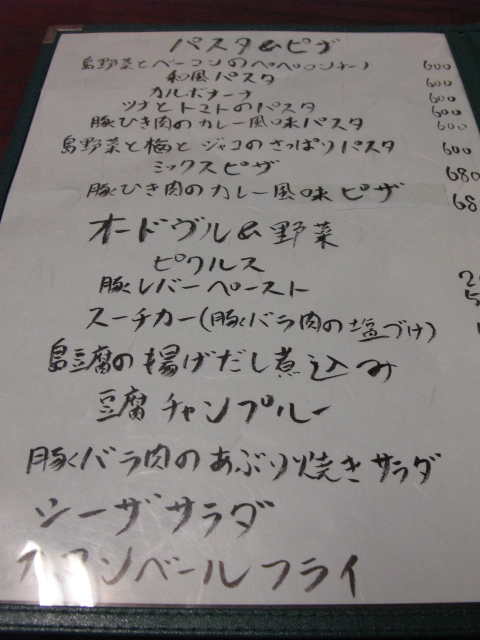 パスタ&ピザ
島野菜とベーコンのペペロンチーノ 600
和風パスタ 600
カルボナーナ 600
ツナとトマトのパスタ 600
豚ひき肉のカレー風味パスタ 600
島野菜と梅とジャコのさっぱりパスタ 600
ミックスピザ 680
豚ひき肉のカレー風味ピザ 68
オードヴル&野菜
ピクルス
豚レバーペースト
スーチカー(豚バラ肉の塩づけ)
島豆腐の揚げだし煮込み
豆腐チャンプルー
豚バラ肉のあぶり焼きサラダ
シーザサラダ
カマンベールフライ